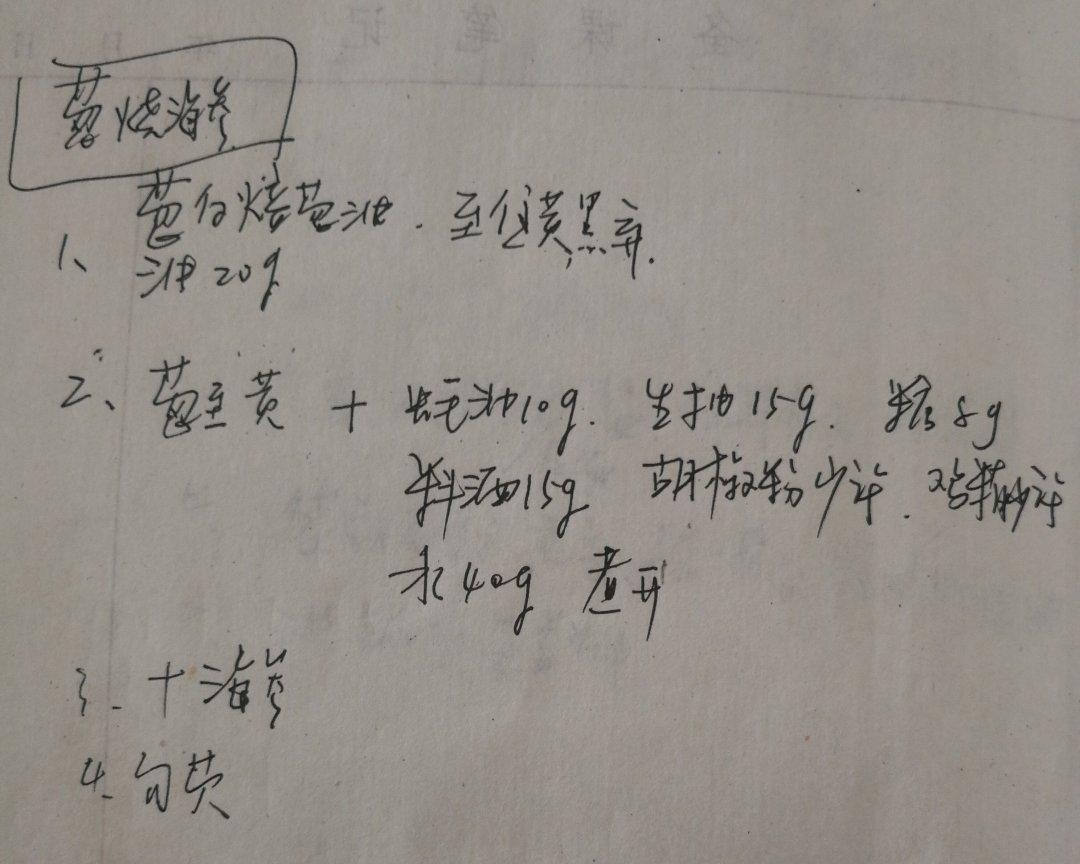 备课笔记 年 月 日
葱烧海参
1、葱白熬葱油.至位黄黑弃.
油20g
2、葱至黄 + 蚝油10g. 生抽15g. 糖5g
料酒15g 胡椒粉少许. 鸡精少许
水40g 煮开
3. 十海参
4. 勾芡